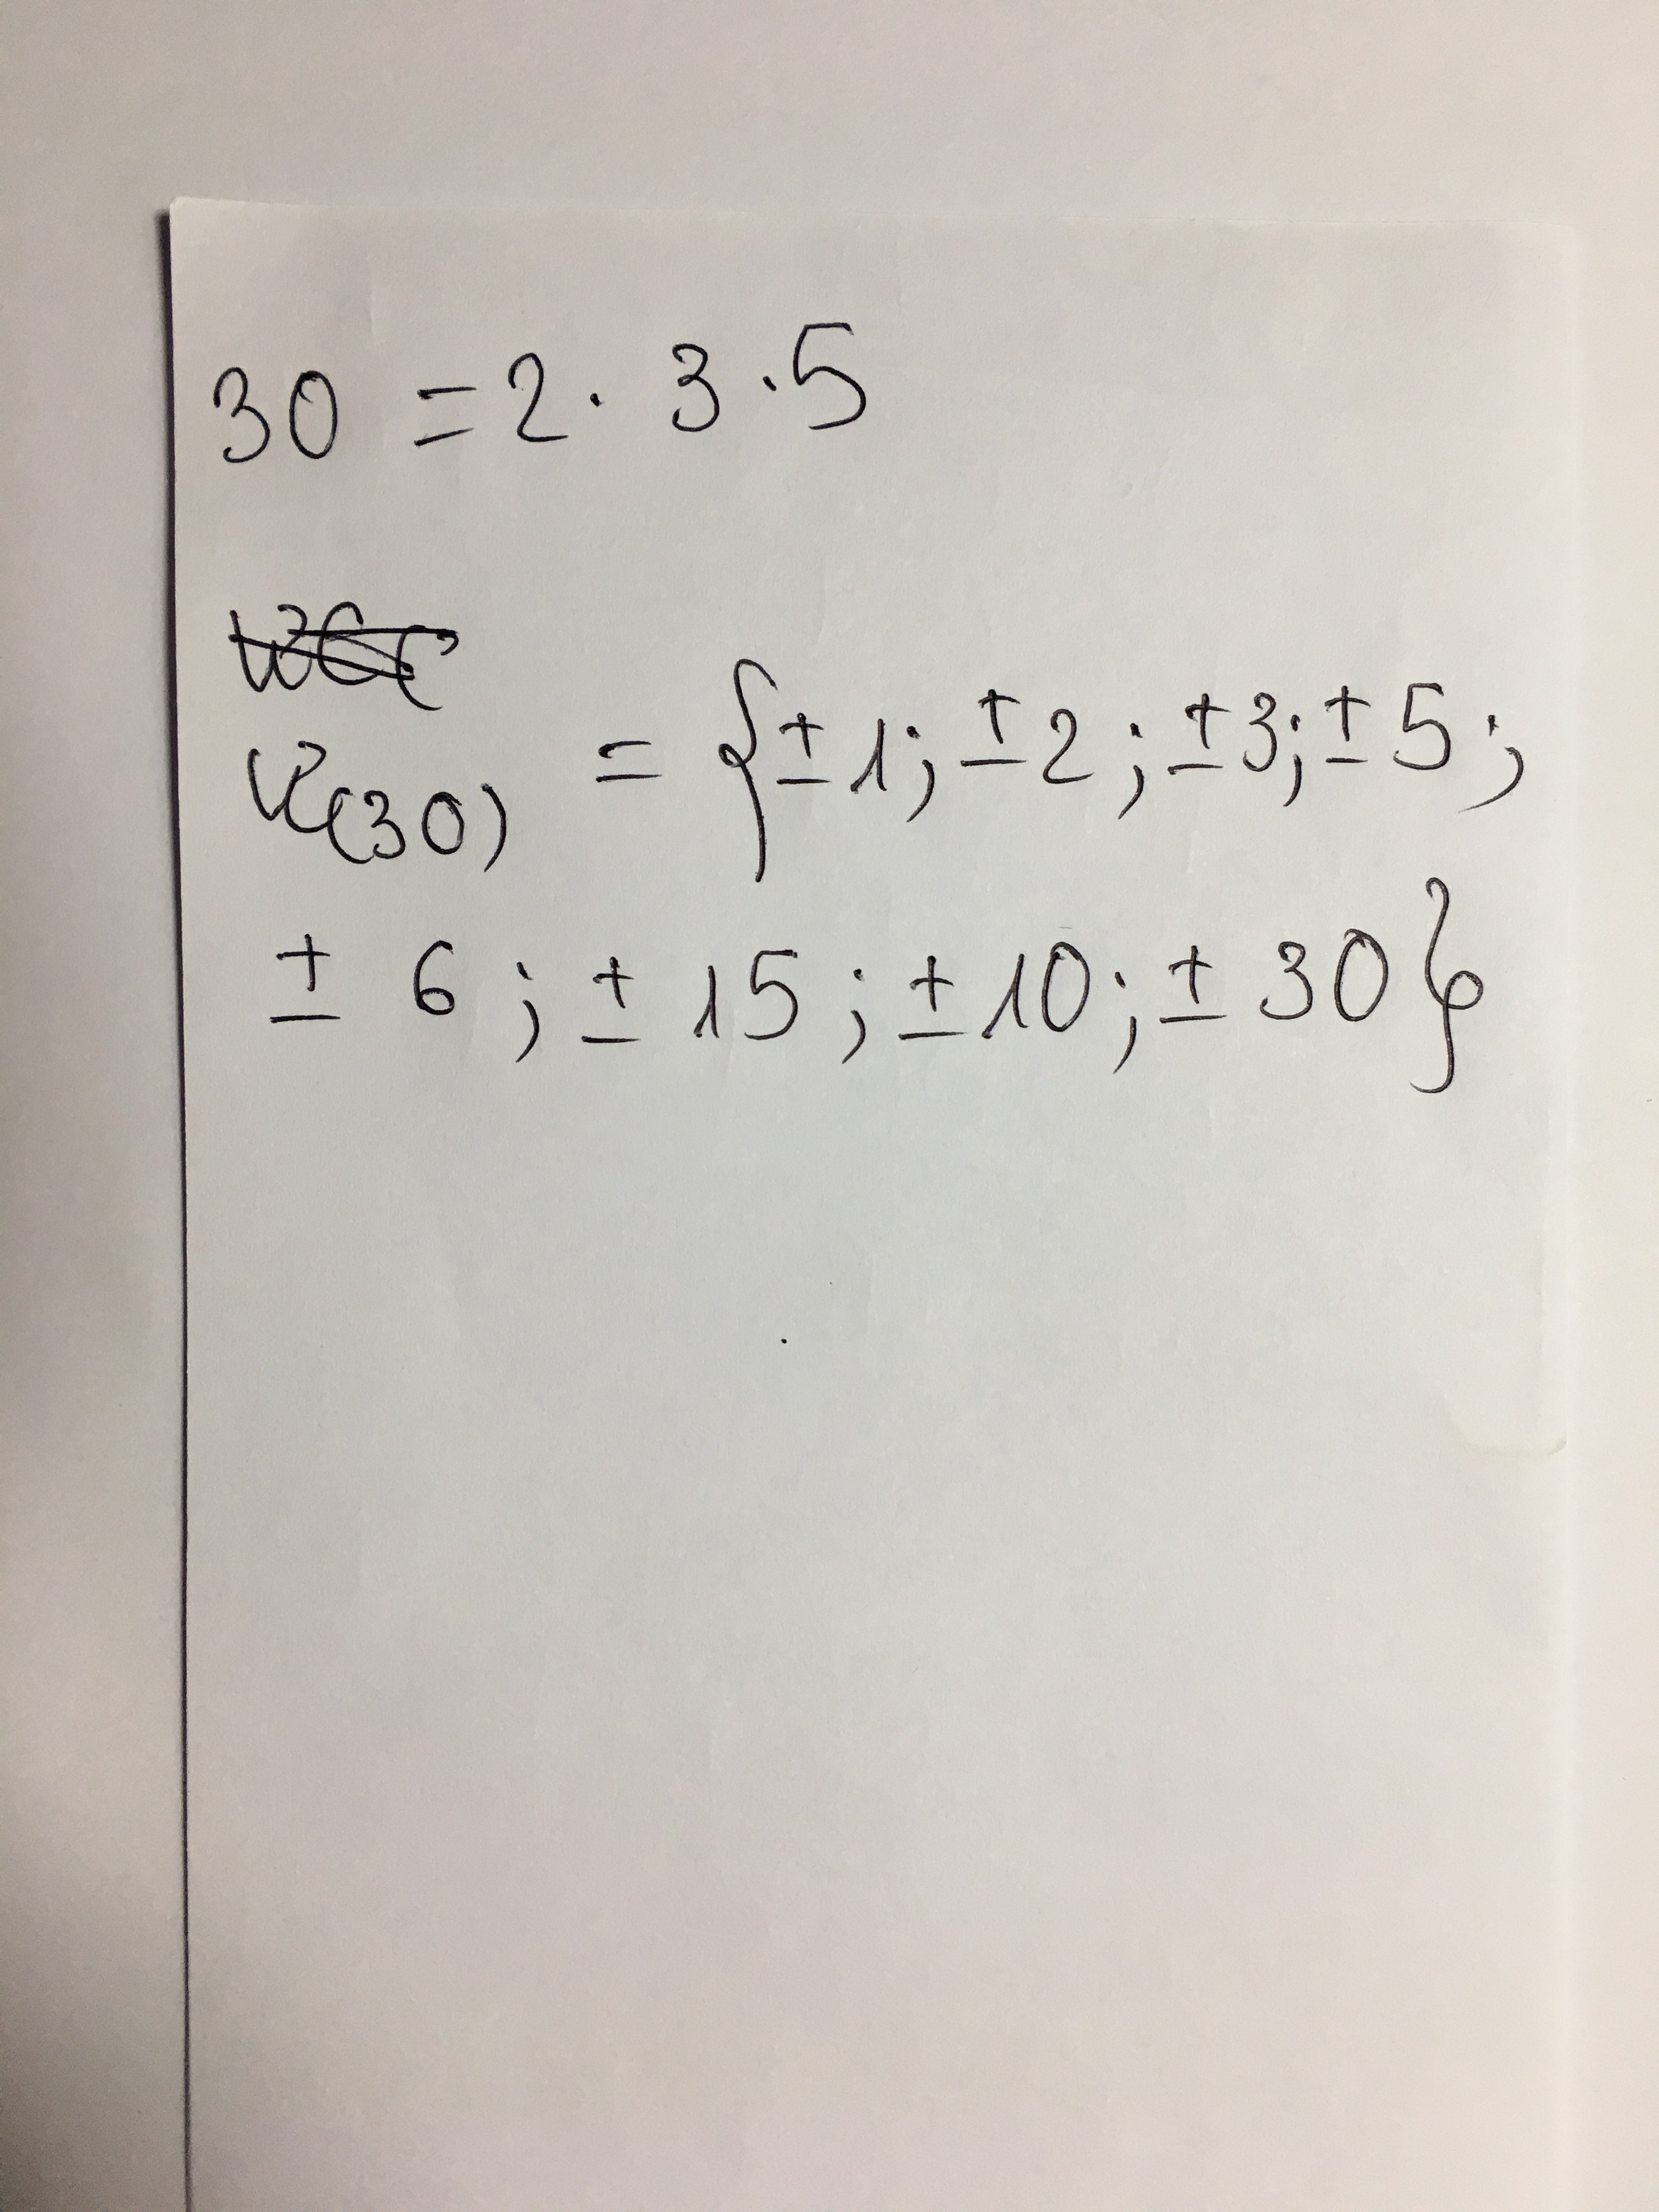 30 = 2 · 3 · 5
Ư(30) = {± 1; ± 2; ± 3; ± 5;
± 6; ± 15; ± 10; ± 30}